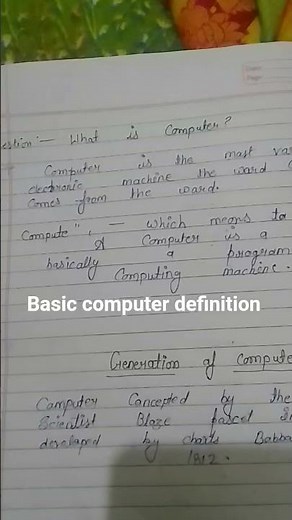 estion :- What is Computer?
Computer is the mast var
electronic machine the ward
Comes from the ward.
Compute", - which means to
A Computer is a
basically a program
Computing machine.
Basic computer definition
Generation of Compute
Computer Concepted by the
Scientist Blaze pascel
developed by charls Babba
1812.